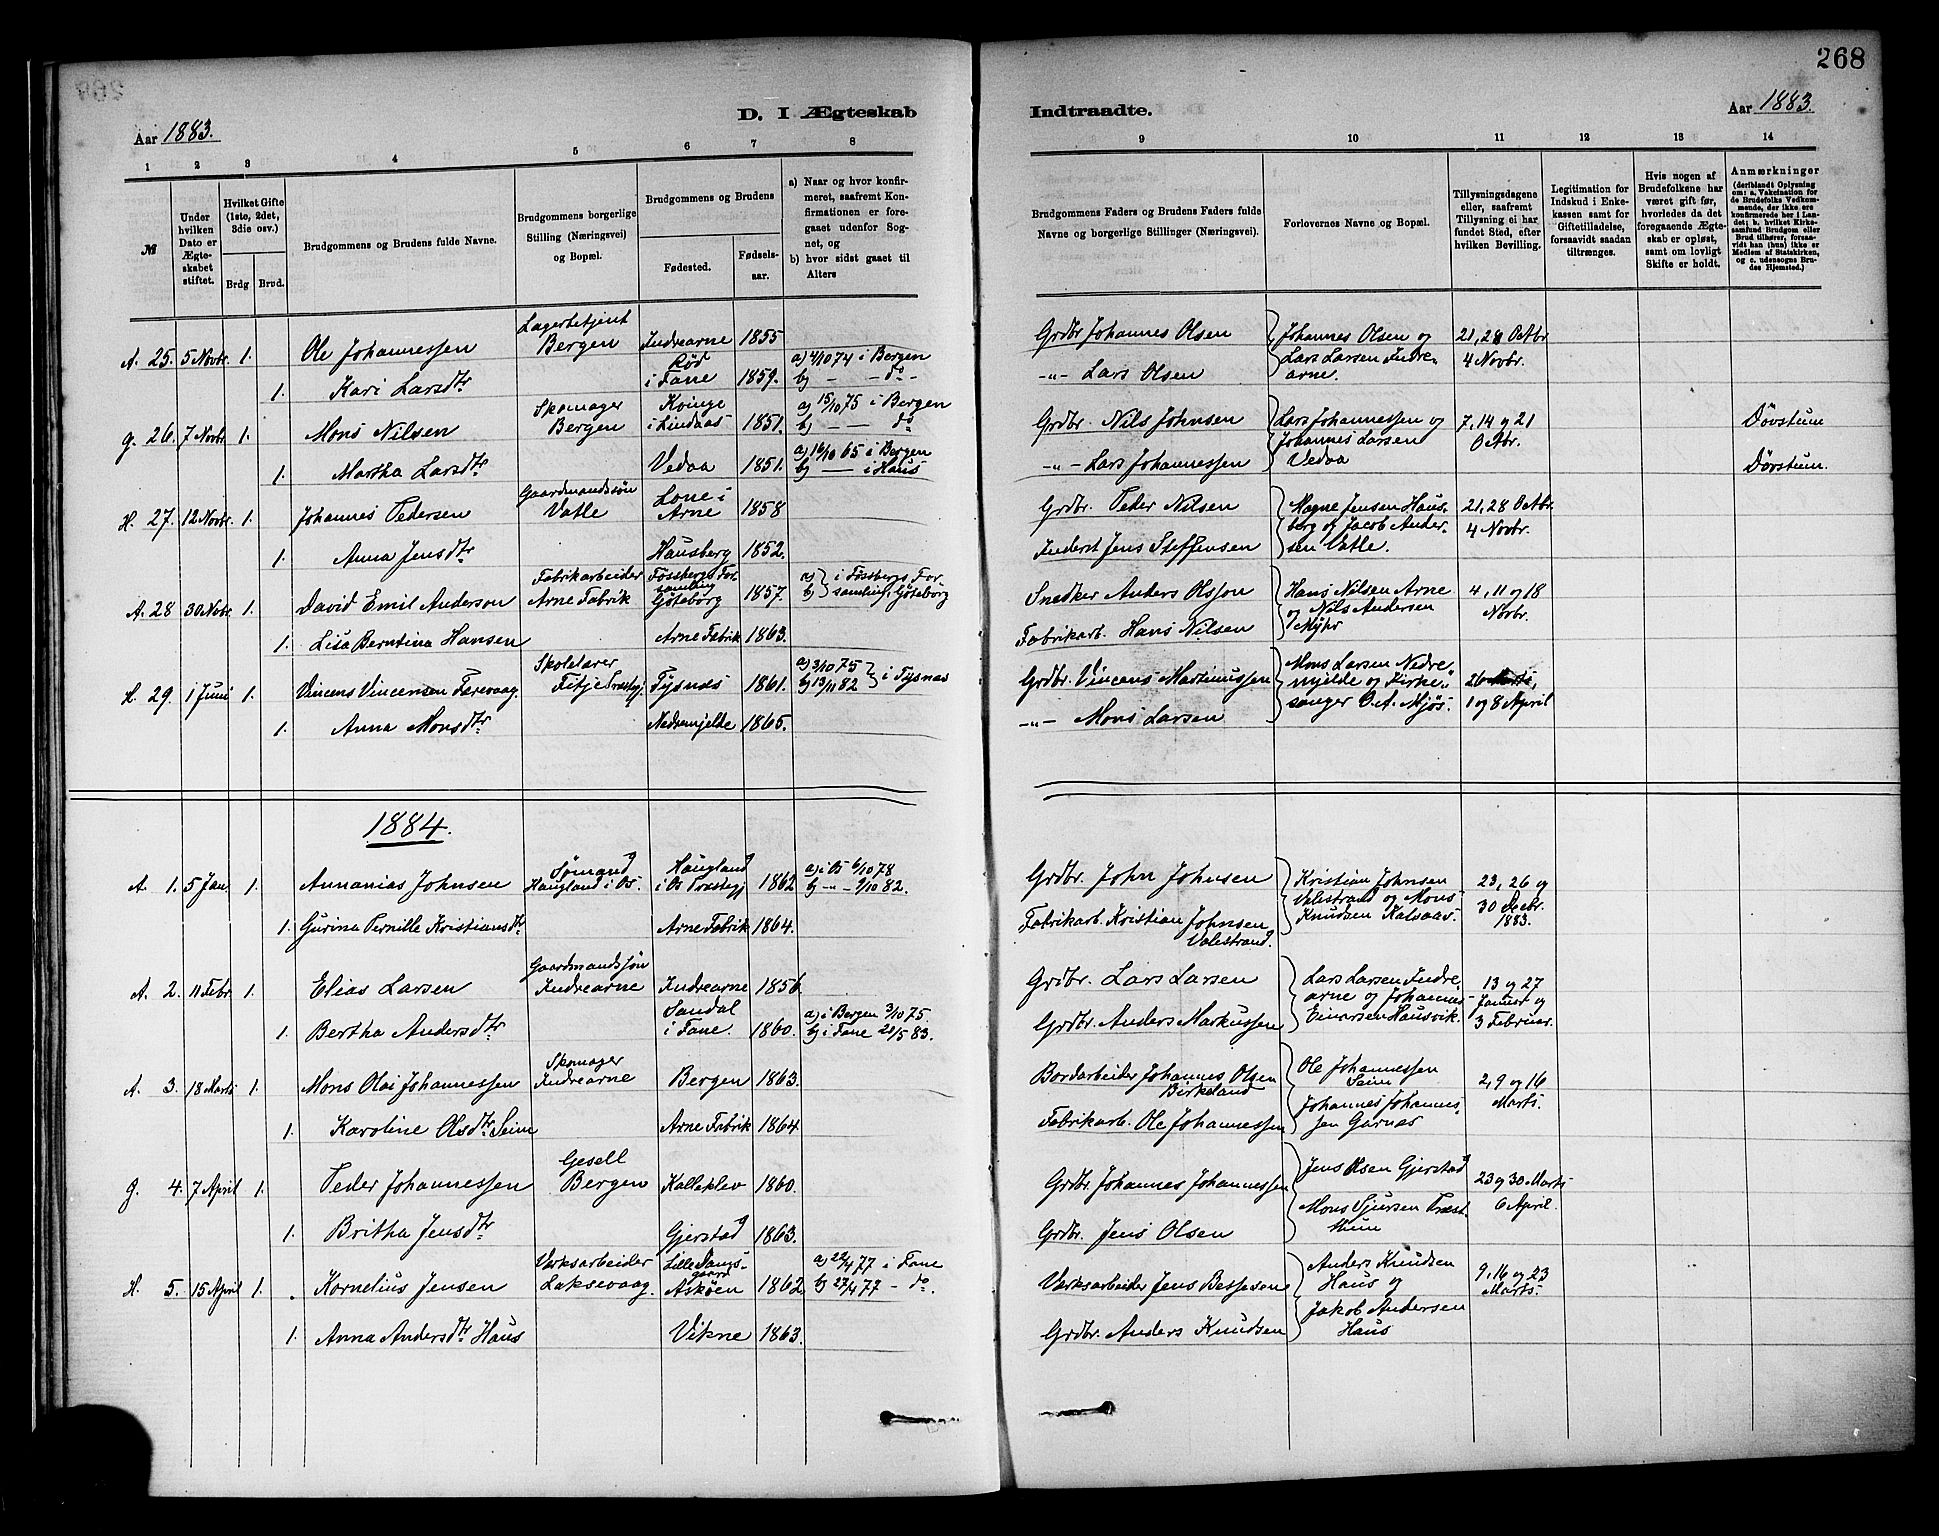 268
D. I Ægteskab Indtraadte.
Aar 1883. Aar 1883.
1 2 3 4 5 6 7 8 9 10 11 12 13 14
№
Under hvilken Dato er Ægteskabet stiftet.
Hvilket Gifte (1ste, 2det, 3die osv.)
Brdg Brud.
Brudgommens og Brudens fulde Navne.
Brudgommens borgerlige Stilling (Næringsvei) og Bopæl.
Brudgommens og Brudens
Fødested. Fødselsaar.
a) Naar og hvor konfirmeret, saafremt Konfirmationen er foregaaet udenfor Sognet, og
b) hvor sidst gaaet til Alters
Brudgommens Faders og Brudens Faders fulde Navne og borgerlige Stillinger (Næringsvei).
Forlovernes Navne og Bopæl.
Tillysningsdagene eller, saafremt Tillysning ei har fundet Sted, efter hvilken Bevilling.
Legitimation for Indskud i Enkekassen samt for Giftetilladelse, forsaavidt saadan tiltrænges.
Hvis nogen af Brudefolkene har været gift før, hvorledes da det foregaaende Ægteskab er opløst, samt om lovligt Skifte er holdt.
Anmærkninger (deriblandt Oplysning om: a. Vakcination for de Brudefolks Vedkommende, der ikke ere konfirmerede her i Landet; b. hvilket Kirkesamfund Brudgom eller Brud tilhører, forsaavidt han (hun) ikke er Medlem af Statskirken, og c. udensogns Brudes Hjemsted.)
A. 25. 5 Novbr. 1. Ole Johannessen Lagerbetjent Bergen Indrearne 1855 Grdbr. Johannes Olsen Johannes Olsen og Lars Larsen Indrearne. 21, 28 Octbr 4 Novbr.
1. Kari Larsdtr Rød i Fane 1859. a) 4/10 74 i Bergen b) - - do - -"- Lars Olsen
G. 26. 7 Novbr 1. Mons Nilsen Skomager Bergen Kvinge i Lindaas 1851. a) 15/10 75 i Bergen b) — — do Grdbr. Nils Johnsen Lars Johannessen og Johannes Larsen Vedaa 7, 14 og 21 Octbr. Døvstum
1. Martha Larsdtr Vedaa 1851. a) 16/10 65 i Bergen b) — i Haus -"- Lars Johannessen Døvstum.
H. 27. 12 Novbr. 1. Johannes Pedersen Gaardmandssøn Vatle Lone i Arne 1858 Grdbr. Peder Nilsen Magne Jensen Hausberg og Jacob Andersen Vatle. 21, 28 Octbr. 4 Novbr.
1. Anna Jensdtr Hausberg 1852. Inderst Jens Steffensen
A. 28 30 Novbr 1. David Emil Anderson Fabrikarbeider Arne Fabrik Fössbergs Forsamling Göteborg 1857. a) b) i Fössbergs Forsamling, Göteborg Snedker Anders Olsson Hans Nilsen Arne og Nils Andersen Myhr 4, 11 og 18 Novbr.
1. Lisa Berntina Hansen Arne Fabrik 1863. Fabrikarb. Hans Nilsen
H. 29. 1 Juni 1. Vincens Vincensen Færevaag Skolelærer Fitje Præstegj. Tysnæs 1861. a) 3/10 75 b) 13/11 82 i Tysnæs Grdbr. Vincens Martinussen Mons Larsen Nedremjelde og Kirkesanger O. A. Mjøs. 26 1 og 8 April
1. Anna Monsdtr Nedremjelde 1865. -"- Mons Larsen
1884.
A. 1. 5 Jan. 1. Annanias Johnsen Sømand Haugland i Os. Haugland i Os Præstegj 1862 a) i Os 6/10 78 b) -"- 9/10 82. Grdbr. John Johnsen Kristian Johnsen Valestrand og Mons Knudsen Kalsaas. 23, 26 og 30 Decbr. 1883.
1. Gurina Pernille Kristiansdtr Arne Fabrik 1864. Fabrikarb. Kristian Johnsen Valestrand.
A. 2. 11 Febr. 1. Elias Larsen Gaardmandssøn Indrearne Indrearne 1856. Grdbr. Lars Larsen Lars Larsen Indrearne og Johannes Einarsen Hausvik. 13 og 27 Januar og 3 Februar.
1. Bertha Andersdtr Sandal i Fane. 1860. a) i Bergen 3/10 75. b) i Fane 20/5 83. Grdbr. Anders Markussen
A. 3. 18 Marts 1. Mons Olai Johannessen Skomager Indrearne Bergen 1863. Bordarbeider Johannes Olsen Birkeland Ole Johannessen Seim Johannes Johannessen Garnæs 2, 9 og 16 Marts.
1. Karoline Olsdtr Seim Arne Fabrik 1864. Fabrikarb. Ole Johannessen
G. 4. 7 April 1. Peder Johannessen Gesell Bergen Kalleklev 1860. Grdbr. Johannes Johannessen Jens Olsen Gjerstad Mons Sjursen Træsthum 23 og 30 Marts 6 April.
1. Britha Jensdtr Gjerstad 1863. Grdbr. Jens Olsen
H. 5. 15 April 1. Kornelius Jensen Værksarbeider Laksevaag. Lille Damsgaard Askøen 1862. a) 22/4 77 i Fane b) 27/4 77 - do. Værksarbeider Jens Bessesen Anders Knudsen Haus og Jakob Andersen Haus 9, 16 og 23 Marts.
1. Anna Andersdtr Haus Vikne 1863. Grdbr. Anders Knudsen